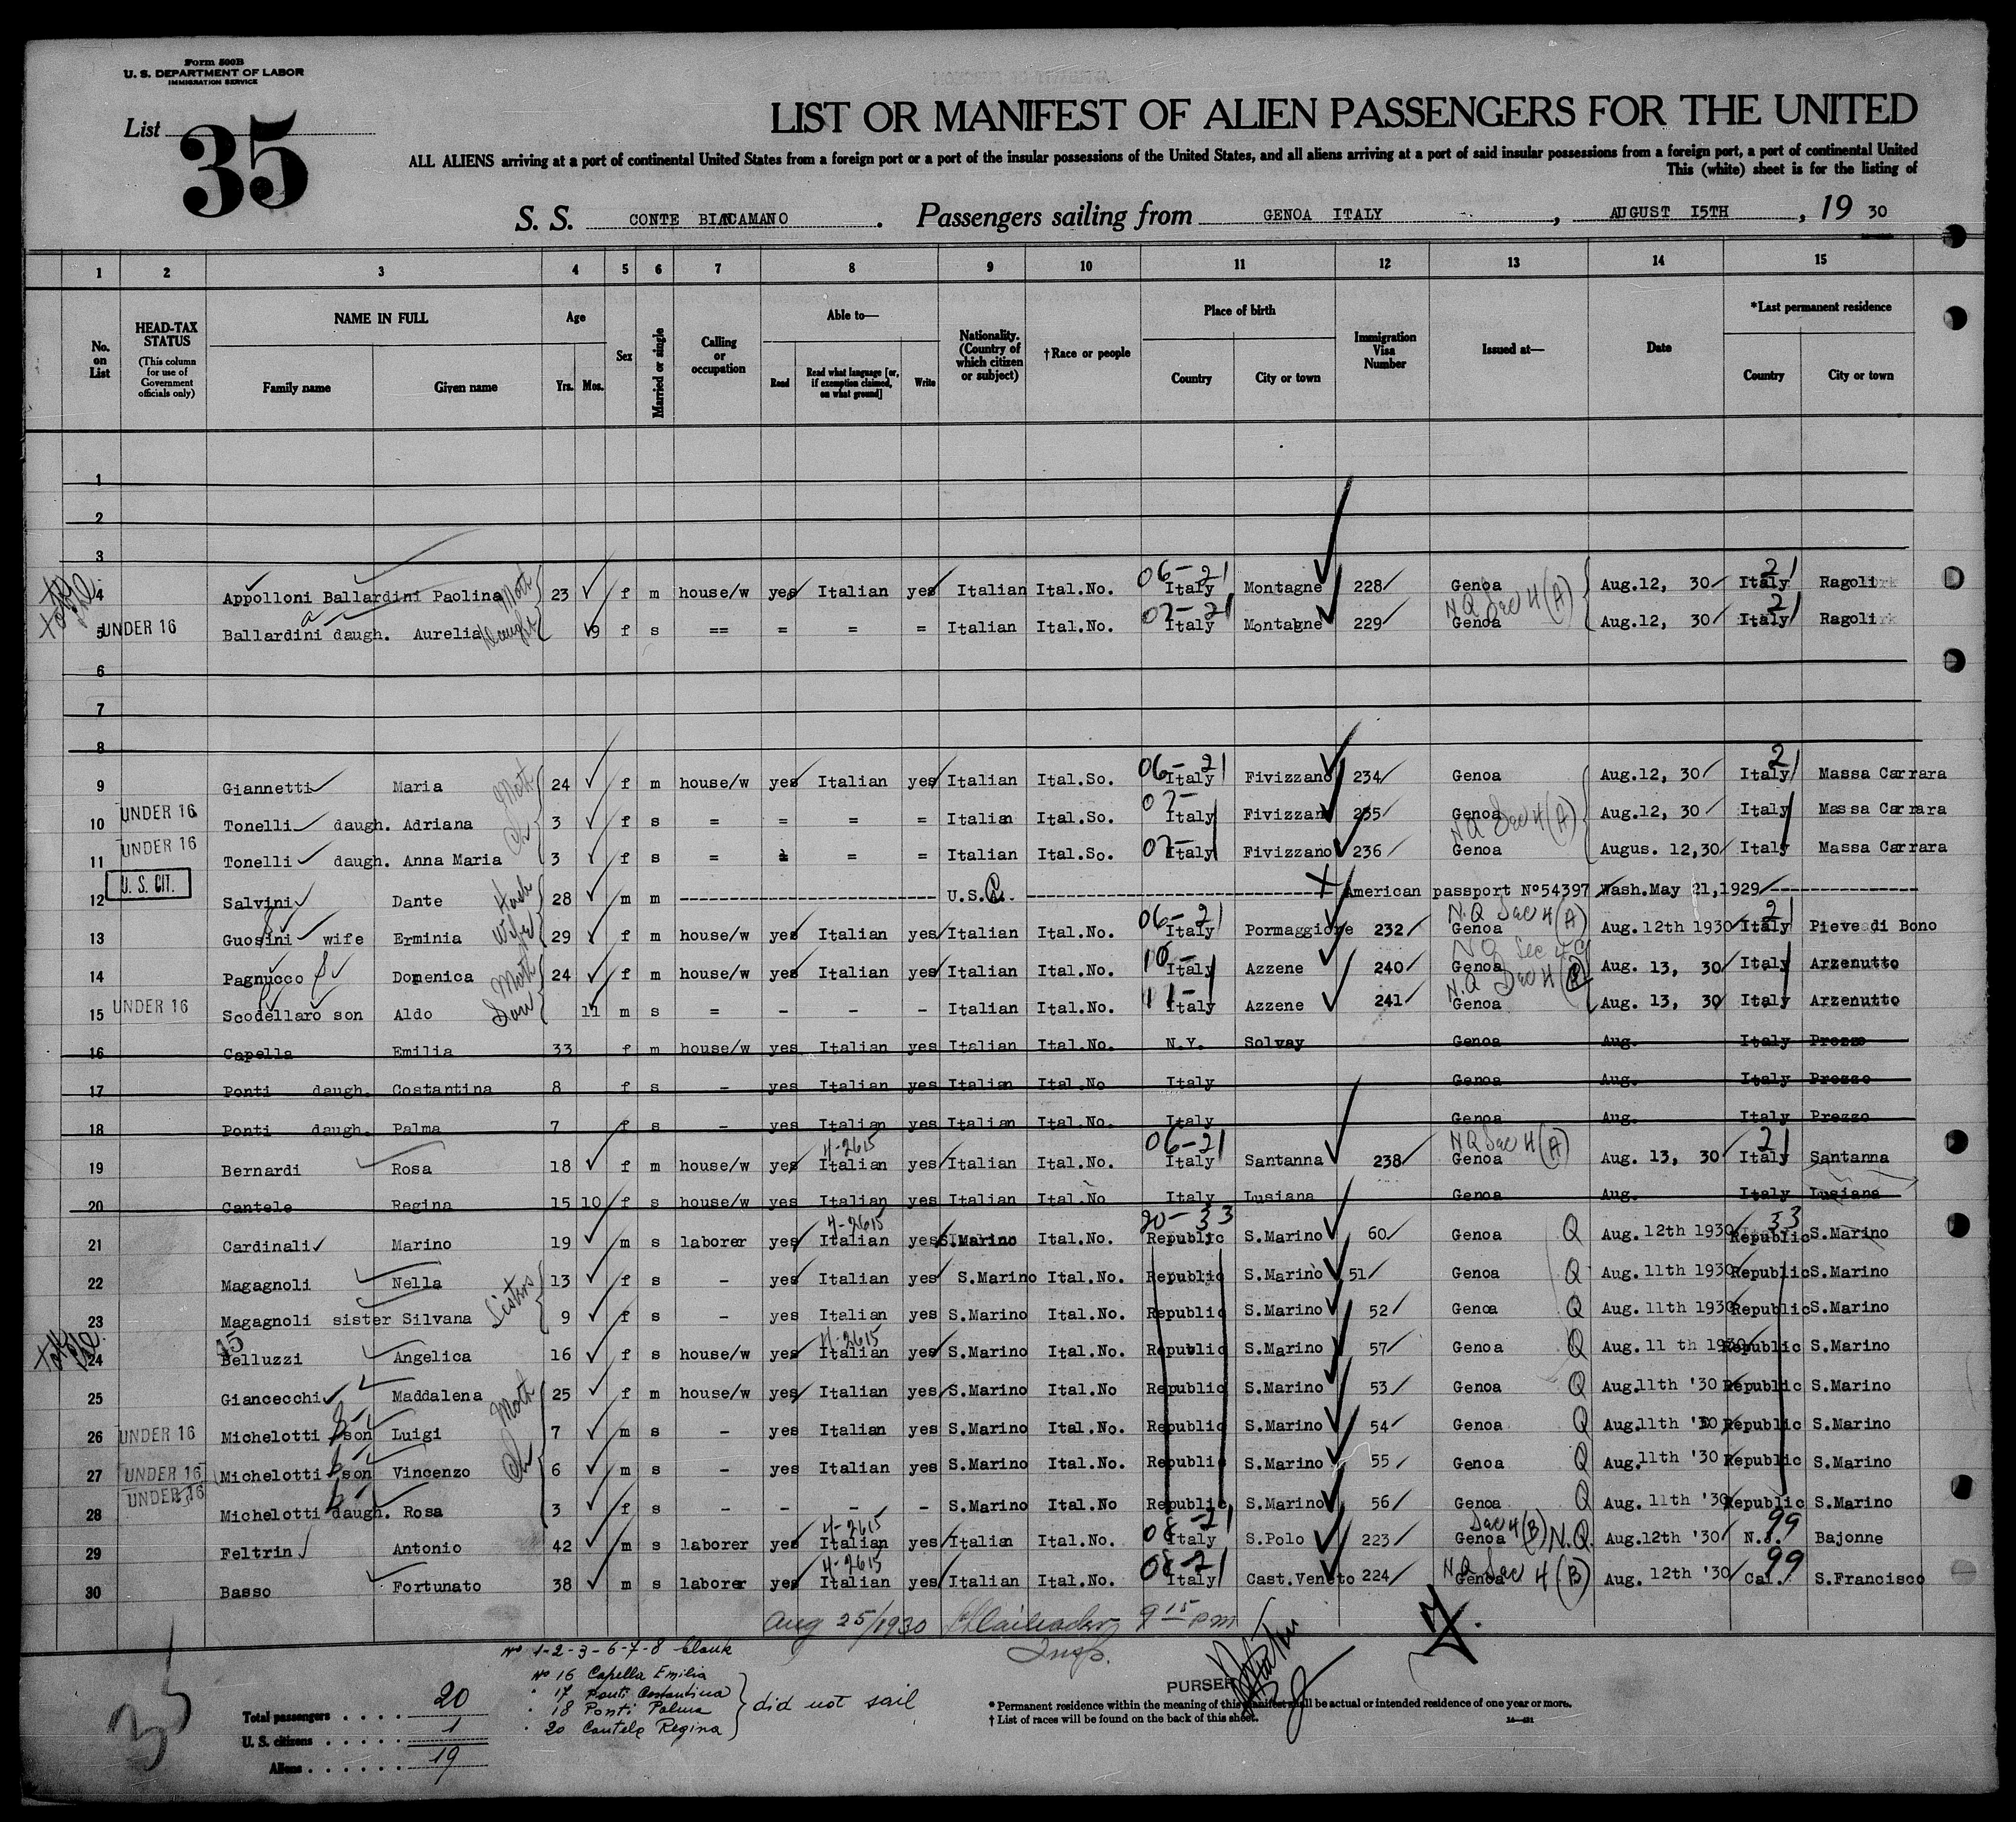 Form 500B
U. S. DEPARTMENT OF LABOR
IMMIGRATION SERVICE
List 35
LIST OR MANIFEST OF ALIEN PASSENGERS FOR THE UNITED
ALL ALIENS arriving at a port of continental United States from a foreign port or a port of the insular possessions of the United States, and all aliens arriving at a port of said insular possessions from a foreign port, a port of continental United
This (white) sheet is for the listing of
S. S. CONTE BIANCAMANO. Passengers sailing from GENOA ITALY, AUGUST 15TH, 19 30
1 2 3 4 5 6 7 8 9 10 11 12 13 14 15
No. on List
HEAD-TAX STATUS (This column for use of Government officials only)
NAME IN FULL Family name Given name
Age Yrs. Mos.
Sex
Married or single
Calling or occupation
Able to— Read Read what language [or, if exemption claimed, on what ground] Write
Nationality. (Country of which citizen or subject)
†Race or people
Place of birth Country City or town
Immigration Visa Number
Issued at—
Date
*Last permanent residence Country City or town
1
2
3
4 Appolloni Ballardini Paolina Moth 23 f m house/w yes Italian yes Italian Ital.No. 06-21 Italy Montagne 228 Genoa Aug.12, 30 21 Italy Ragoli
5 UNDER 16 Ballardini daugh. Aurelia Daught 9 f s == = = = Italian Ital.No. 07-21 Italy Montagne 229 NQ Sec 4 (A) Genoa Aug.12, 30 21 Italy Ragoli
6
7
8
9 Giannetti Maria Moth 24 f m house/w yes Italian yes Italian Ital.So. 06-21 Italy Fivizzano 234 Genoa Aug.12, 30 21 Italy Massa Carrara
10 UNDER 16 Tonelli daugh. Adriana Ch 3 f s = = = = Italian Ital.So. 07- Italy Fivizzano 235 Genoa Aug.12, 30 Italy Massa Carrara
11 UNDER 16 Tonelli daugh. Anna Maria 3 f s = = = = Italian Ital.So. 07- Italy Fivizzano 236 NQ Sec 4 (A) Genoa Augus. 12,30 Italy Massa Carrara
12 U. S. CIT. Salvini Dante Husb 28 m m U.S.A. American passport N°54397 Wash.May 21,1929
13 Guosini wife Erminia Wife 29 f m house/w yes Italian yes Italian Ital.No. 06-21 Italy Pormaggiore 232 N.Q Sec 4 (A) Genoa Aug. 12th 1930 21 Italy Pieve di Bono
14 Pagnuoco Domenica Moth 24 f m house/w yes Italian yes Italian Ital.No. 10- Italy Azzene 240 NQ Sec 4 Genoa Aug. 13, 30 Italy Arzenutto
15 UNDER 16 Scodellaro son Aldo Son 11 m s = - - - Italian Ital.No. 11- Italy Azzene 241 N.Q Sec 4 Genoa Aug. 13, 30 Italy Arzenutto
16 Capella Emilia 33 f m house/w yes Italian yes Italian Ital.No. N.Y. Solvay Genoa Aug. Italy Prezzo
17 Ponti daugh. Costantina 8 f s - yes Italian yes Italian Ital.No Italy Genoa Aug. Italy Prezzo
18 Ponti daugh. Palma 7 f s - yes Italian yes Italian Ital.No. Italy Genoa Aug. Italy Prezzo
19 Bernardi Rosa 18 f m house/w yes 4-2615 Italian yes Italian Ital.No. 06-21 Italy Santanna 238 NQ Sec 4 (A) Genoa Aug. 13, 30 21 Italy Santanna
20 Cantele Regina 15 10 f s house/w yes Italian yes Italian Ital.No Italy Lusiana Genoa Aug. Italy Lusiana
21 Cardinali Marino 19 m s laborer yes 4-2615 Italian yes S.Marino Ital.No. 20-33 Republic S.Marino 60 Genoa Q Aug. 12th 1930 33 Republic S.Marino
22 Magagnoli Nella 13 f s - yes Italian yes S.Marino Ital.No. Republic S.Marino 51 Genoa Q Aug. 11th 1930 Republic S.Marino
23 Magagnoli sister Silvana Sisters 9 f s - yes Italian yes S.Marino Ital.No. Republic S.Marino 52 Genoa Q Aug. 11th 1930 Republic S.Marino
24 Belluzzi Angelica 16 f s house/w yes 4-2615 Italian yes S.Marino Ital.No. Republic S.Marino 57 Genoa Q Aug. 11 th 1930 Republic S.Marino
25 Giancecchi Maddalena Moth 25 f m house/w yes Italian yes S.Marino Ital.No Republic S.Marino 53 Genoa Q Aug.11th '30 Republic S.Marino
26 UNDER 16 Michelotti son Luigi 7 m s - yes Italian yes S.Marino Ital.No. Republic S.Marino 54 Genoa Q Aug.11th '30 Republic S.Marino
27 UNDER 16 Michelotti son Vincenzo Ch 6 m s - yes Italian yes S.Marino Ital.No. Republic S.Marino 55 Genoa Q Aug.11th '30 Republic S.Marino
28 UNDER 16 Michelotti daugh. Rosa 3 f s - - - - S.Marino Ital.No Republic S.Marino 56 Genoa Q Aug. 11th '30 Republic S.Marino
29 Feltrin Antonio 42 m s laborer yes 4-2615 Italian yes Italian Ital.No. 08-21 Italy S.Polo 223 Sec 4 (B) N.Q. Genoa Aug.12th '30 99 N.J. Bajonne
30 Basso Fortunato 38 m s laborer yes 4-2615 Italian yes Italian Ital.No. 08-21 Italy Cast.Veneto 224 NQ Sec 4 (B) Genoa Aug. 12th '30 99 Cal. S.Francisco
Aug 25/1930 9 15 pm
Insp.
No 1-2-3-6-7-8 blank
No 16 Capella Emilia
" 17 Ponti Costantina
" 18 Ponti Palma
" 20 Cantele Regina
did not sail
PURSER
Total passengers 20
U. S. citizens 1
Aliens 19
35
* Permanent residence within the meaning of this manifest shall be actual or intended residence of one year or more.
† List of races will be found on the back of this sheet.